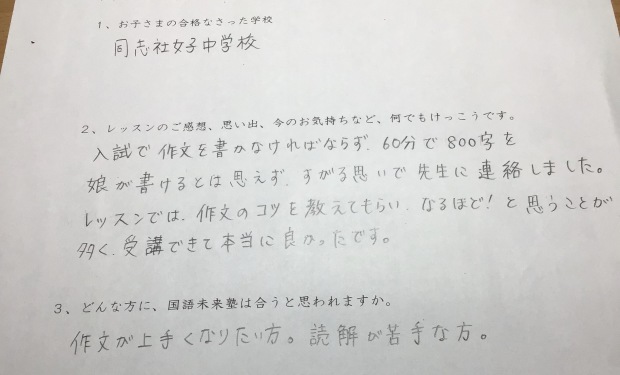 1、お子さまの合格なさった学校
同志社女子中学校
2、レッスンのご感想、思い出、今のお気持ちなど、何でもけっこうです。
入試で作文を書かなければならず、60分で800字を
娘が書けるとは思えず、すがる思いで先生に連絡しました。
レッスンでは、作文のコツを教えてもらい、なるほど!と思うことが
多く、受講できて本当に良かったです。
3、どんな方に、国語未来塾は合うと思われますか。
作文が上手くなりたい方。読解が苦手な方。